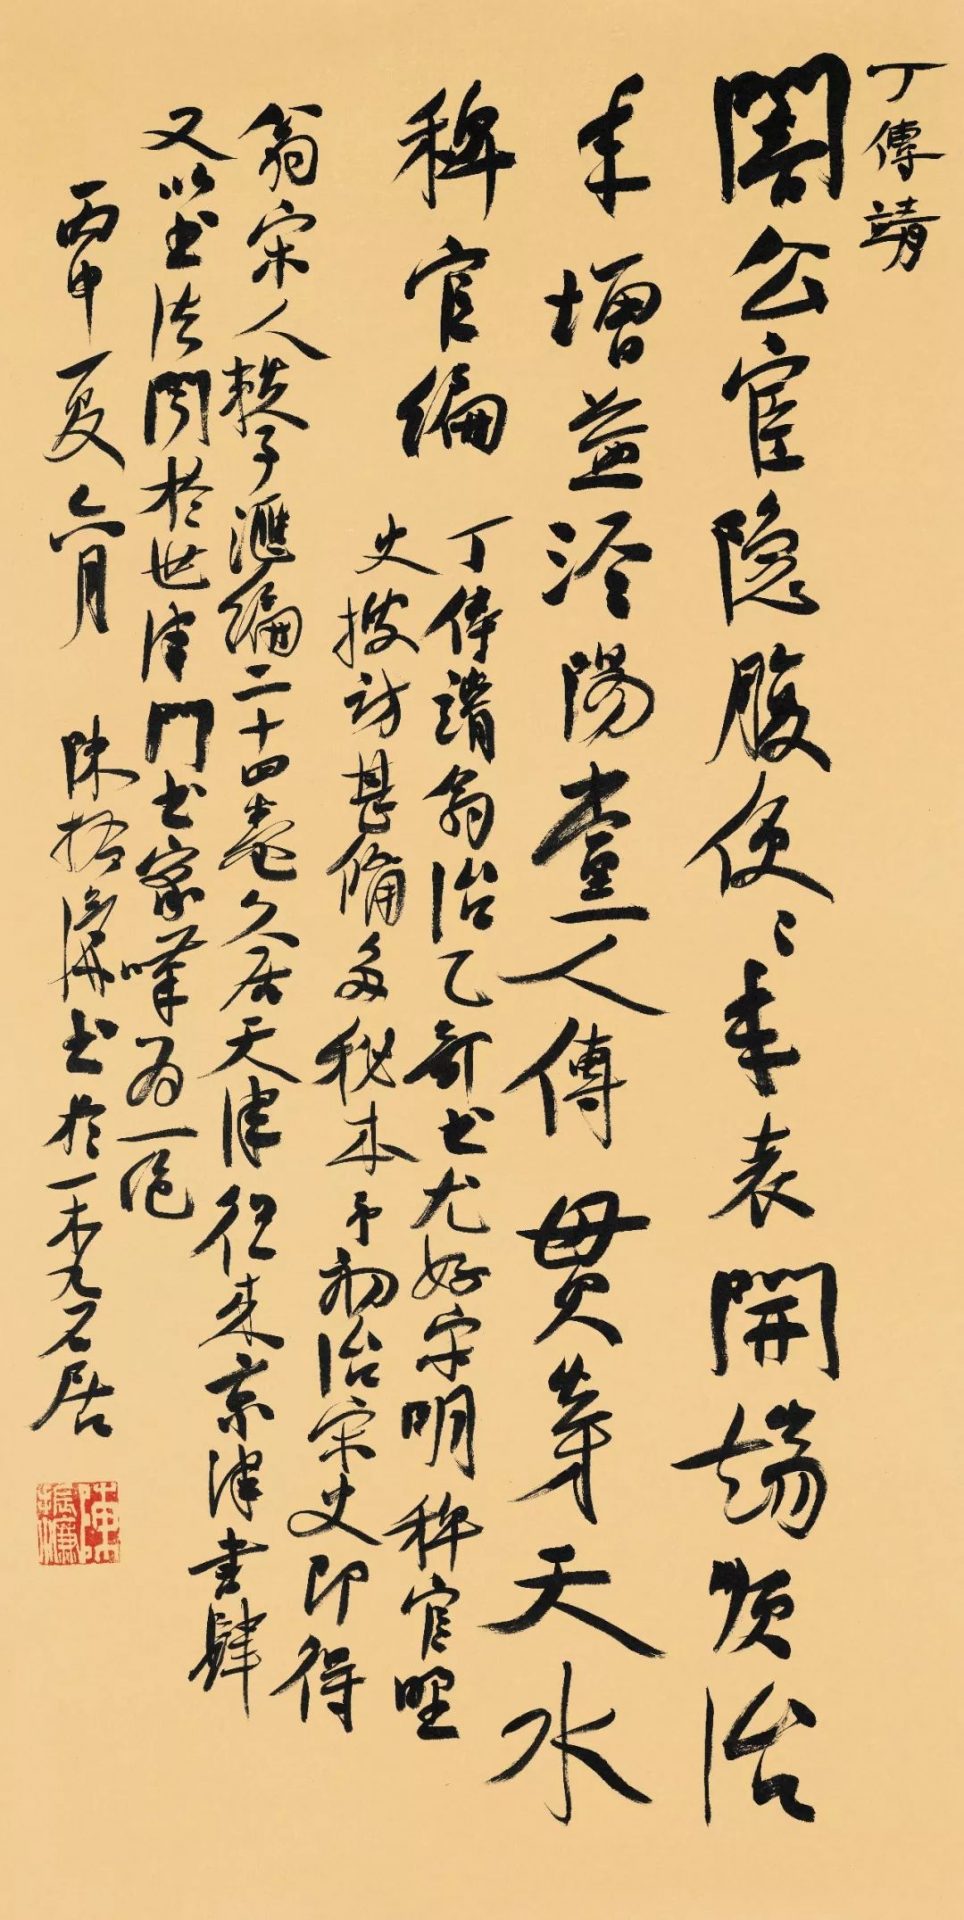 丁傳靖
闇公宦隐腹便〻年表開場順治
年增益陽畫人傳貫天水
稗官編
丁傳靖翁治乙部書尤好宋明稗官野
史搜訪甚備多秘本予初治宋史即得
翁宋人軼事滙編二十四卷久居天津往来京津書肆
又以書法聞於世津門書家嘆為一絕
丙申夏六月 陳振濂書於一木九石居
陳振濂